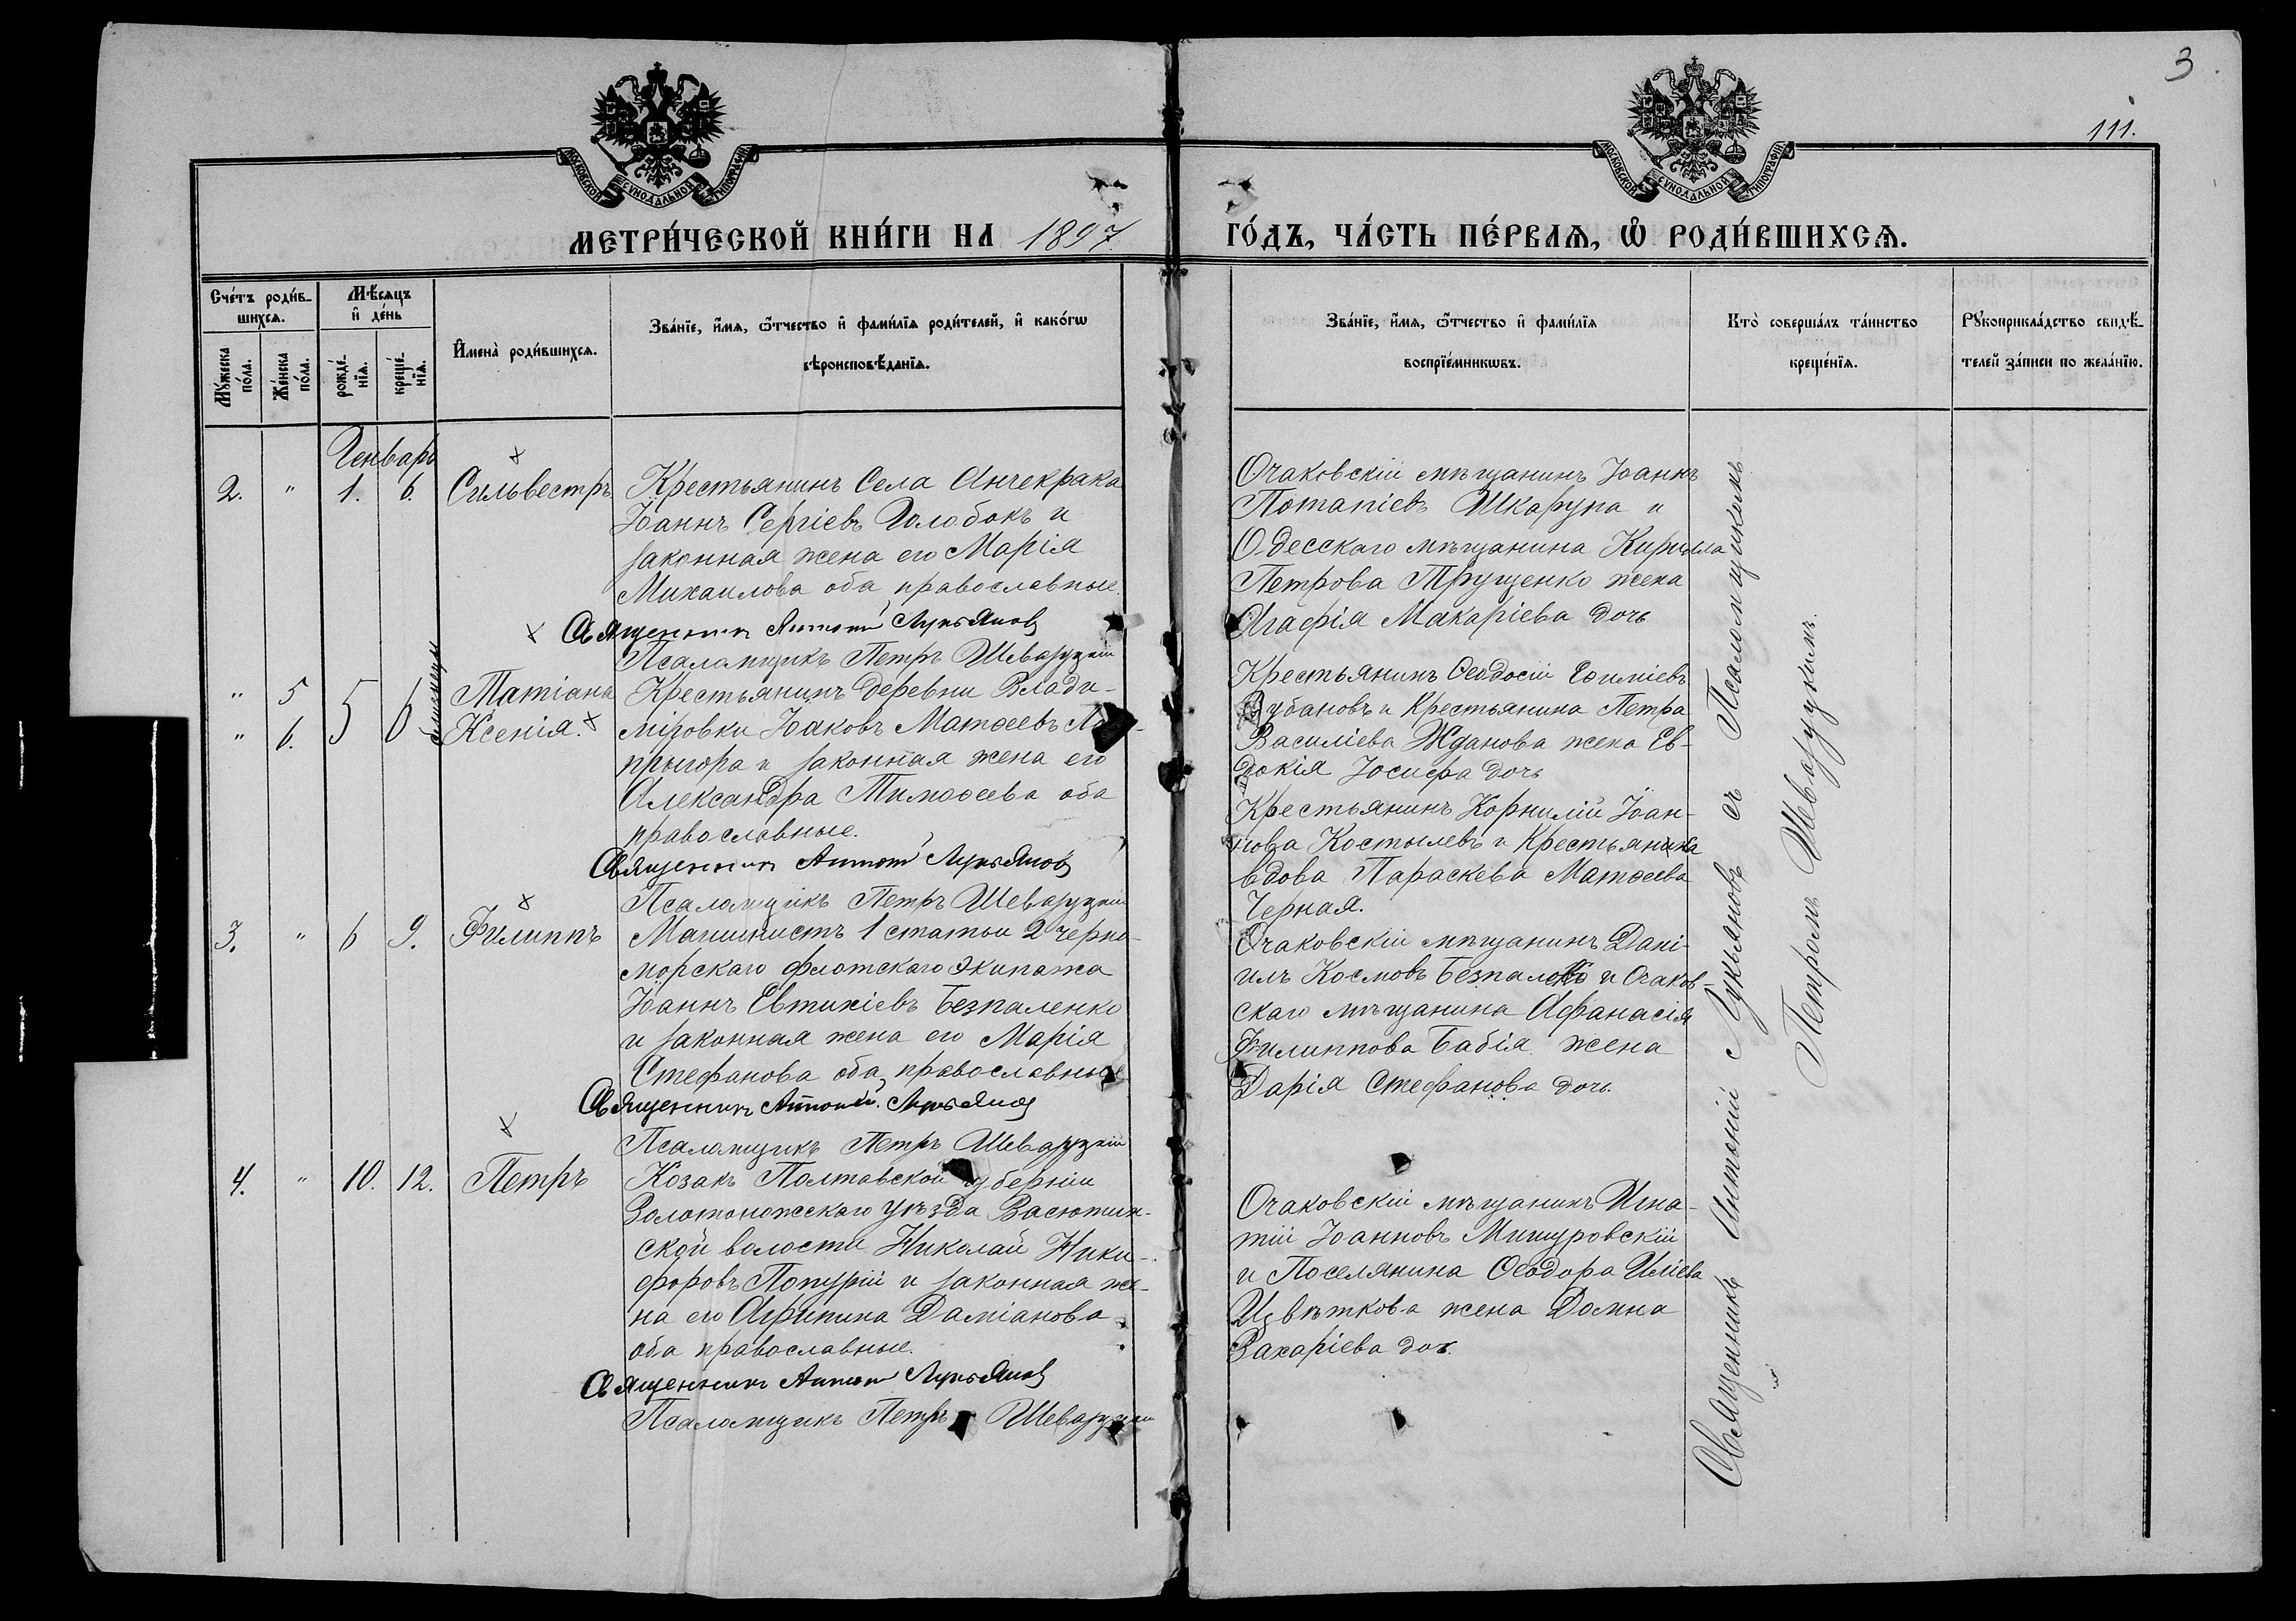 3.
111.
МОСКОВСКОЙ СѴНОДАЛЬНОЙ ТИПОГРАФІИ
МОСКОВСКОЙ СѴНОДАЛЬНОЙ ТИПОГРАФІИ
МЕТРИ́ЧЕСКОЙ КНИ́ГИ НА 1897
ГО́ДЪ, ЧА́СТЬ ПЕ́РВАѦ, Ѡ҆ РОДИ́ВШИХСѦ.
Счетъ роди́в-
шихсѧ.
Мѣ́сѧцъ
и҆ де́нь
Мꙋ́жеска по́ла.
Же́нска по́ла.
рожде́-нїѧ.
креще́-нїѧ.
И҆мена̀ роди́вшихсѧ.
Зва́нїе, и҆́мѧ, ѻ҆́тчество и҆ фами́лїѧ роди́телей, и҆ како́гѡ
вѣроисповѣ́данїѧ.
Зва́нїе, и҆́мѧ, ѻ҆́тчество и҆ фами́лїѧ
воспрїе́мникѡвъ.
Кто̀ соверша́лъ та́инство
креще́нїѧ.
Рꙋкоприкла́дство свидѣ́-
телей за́писи по жела́нїю.
Генварь
2. " 1. 6. Сильвестръ
Крестьянинъ Села Анчекрака
Іоаннъ Сергіевъ Голобокъ и
законная жена его Марія
Михаилова оба православные.
Священникъ Антоній Лукьяновъ
Псаломщикъ Петръ Шеваруцкій
Очаковскій мѣщанинъ Іоаннъ
Потапіевъ Шкарупа и
Одесскаго мѣщанина Кирилла
Петрова Трущенко жена
Агафія Макаріева дочь
" 5 5 6 близнецы Татіана
" 6. Ксенія.
Крестьянинъ деревни Влади-
міровки Іаковъ Матѳеевъ
прыгора и законная жена его
Александра Тимоѳеева оба
православные.
Священникъ Антоній Лукьяновъ
Псаломщикъ Петръ Шеваруцкій
Крестьянинъ Ѳеодосій Еѳиміевъ
Дубановъ и Крестьянина Петра
Василіева Жданова жена Ев-
докія Іосифа дочь
Крестьянинъ Корнилій Іоан-
нова Костылевъ и Крестьянка
вдова Параскева Матѳеева
Черная.
3. " 6 9. Филиппъ
Машинистъ 1 статьи 2 черно-
морскаго флотскаго экипажа
Іоаннъ Евтихіевъ Безпаленко
и законная жена его Марія
Стефанова оба православные
Священникъ Антоній Лукьяновъ
Псаломщикъ Петръ Шеваруцкій
Очаковскій мѣщанинъ Дані-
илъ Космовъ и Очаков-
скаго мѣщанина Афанасія
Филиппова Бабія жена
Дарія Стефанова дочь.
4. " 10. 12. Петръ
Козакъ Полтавской губерніи
Золотоножскаго уѣзда Васютин-
ской волости Николай Ники-
форовъ Попурій и законная же-
на его Агрипина Даміанова
оба православные.
Священникъ Антоній Лукьяновъ
Псаломщикъ Петръ Шеваруцкій
Очаковскій мѣщанинъ Игна-
тій Іоанновъ Мишуровскій
и Поселянина Ѳеодора Иліева
Цвѣткова жена Домна
Захаріева доч.
Священникъ Антоній Лукьяновъ съ Псаломщикомъ
Петромъ Шеваруцкимъ.